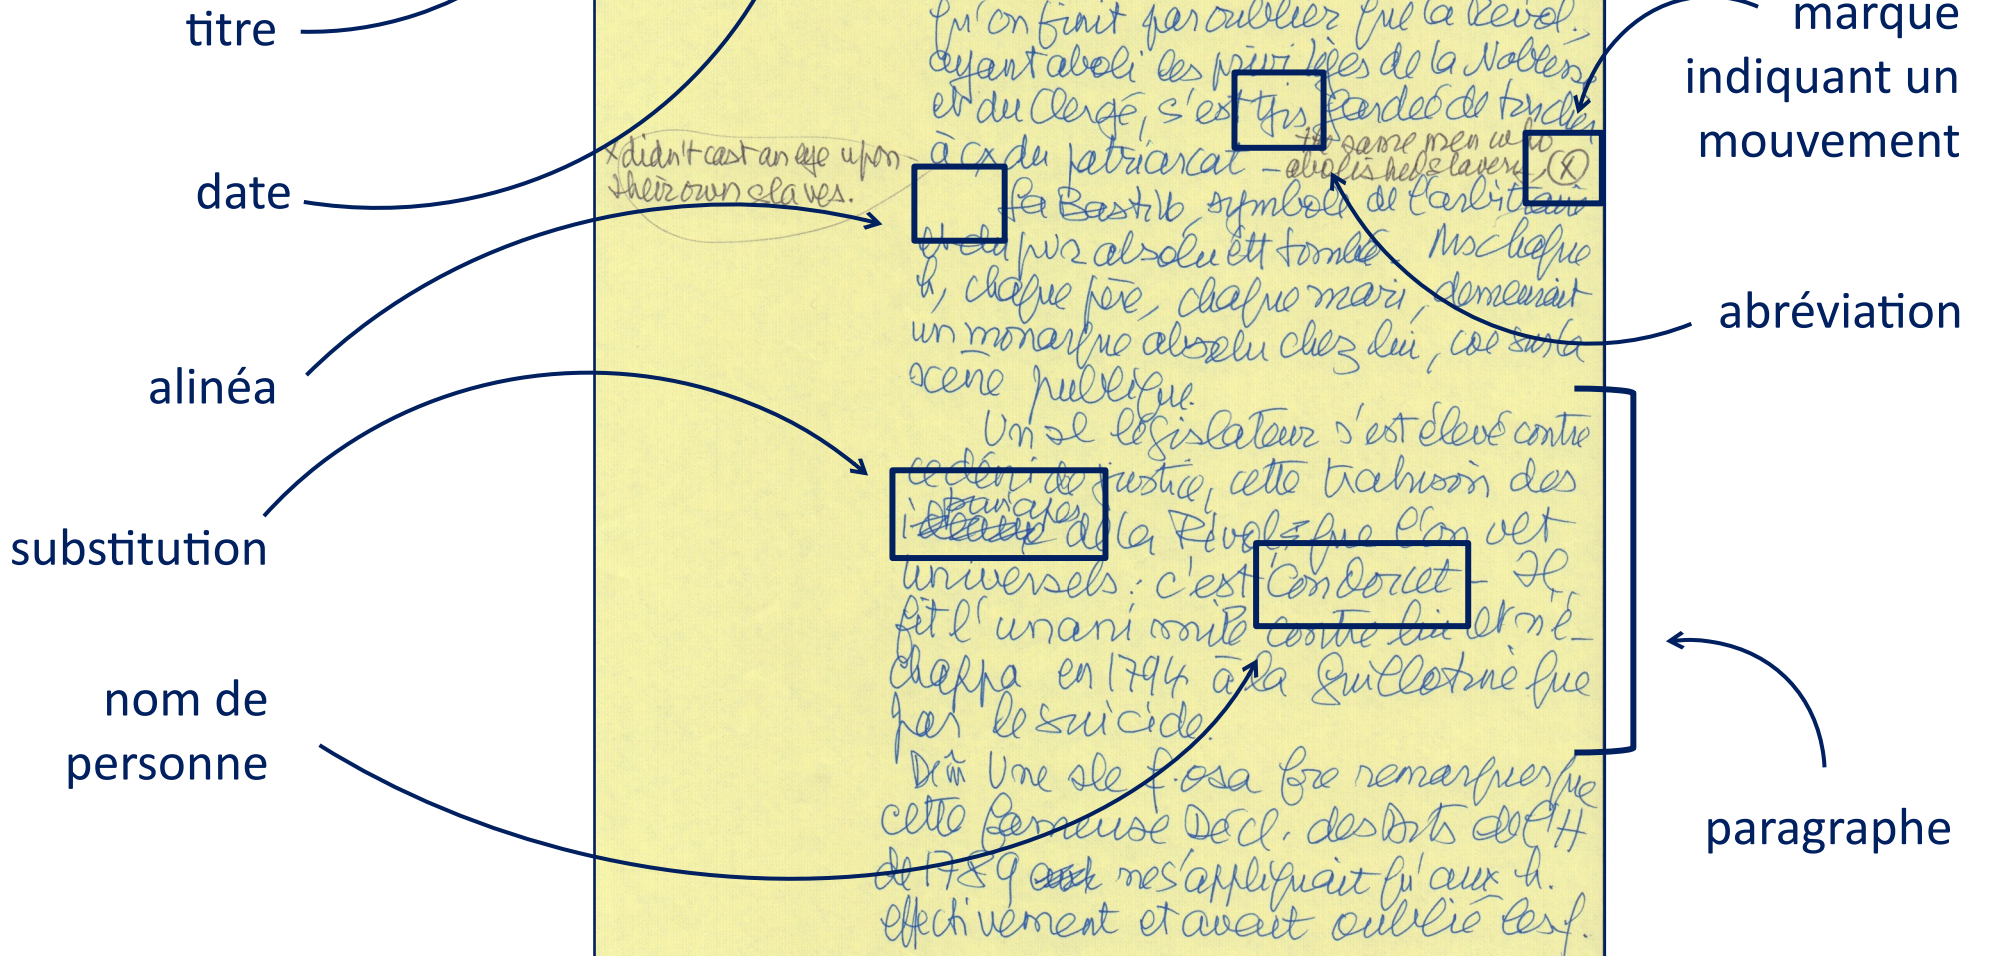 titre
date
alinéa
substitution
nom de
personne
marque
indiquant un
mouvement
abréviation
paragraphe
qu'on finit par oublier que la Révol.,
ayant aboli les privilèges de la Noblesse
et du Clergé, s'est tjs gardée de toucher
à cx du patriarcat - the same men who
abolished slavery, (x)
x didn't cast an eye upon
their own slaves.
La Bastille, symbole de l'arbitraire
et du pvr absolu était tombée. Ms chaque
h, chaque père, chaque mari, demeurait
un monarque absolu chez lui, coe sur la
scène publique.
Un sl législateur s'est élevé contre
ce déni de justice, cette trahison des
principes de la Révol. que l'on vlt
universels : c'est Condorcet - Il
fit l'unanimité contre lui et n'é-
chappa en 1794 à la guillotine que
par le suicide.
Une sle f. osa fre remarquer que
cette fameuse Décl. des Drts de l'H
de 1789 ne s'appliquait qu'aux h.
effectivement et avait oublié les f.